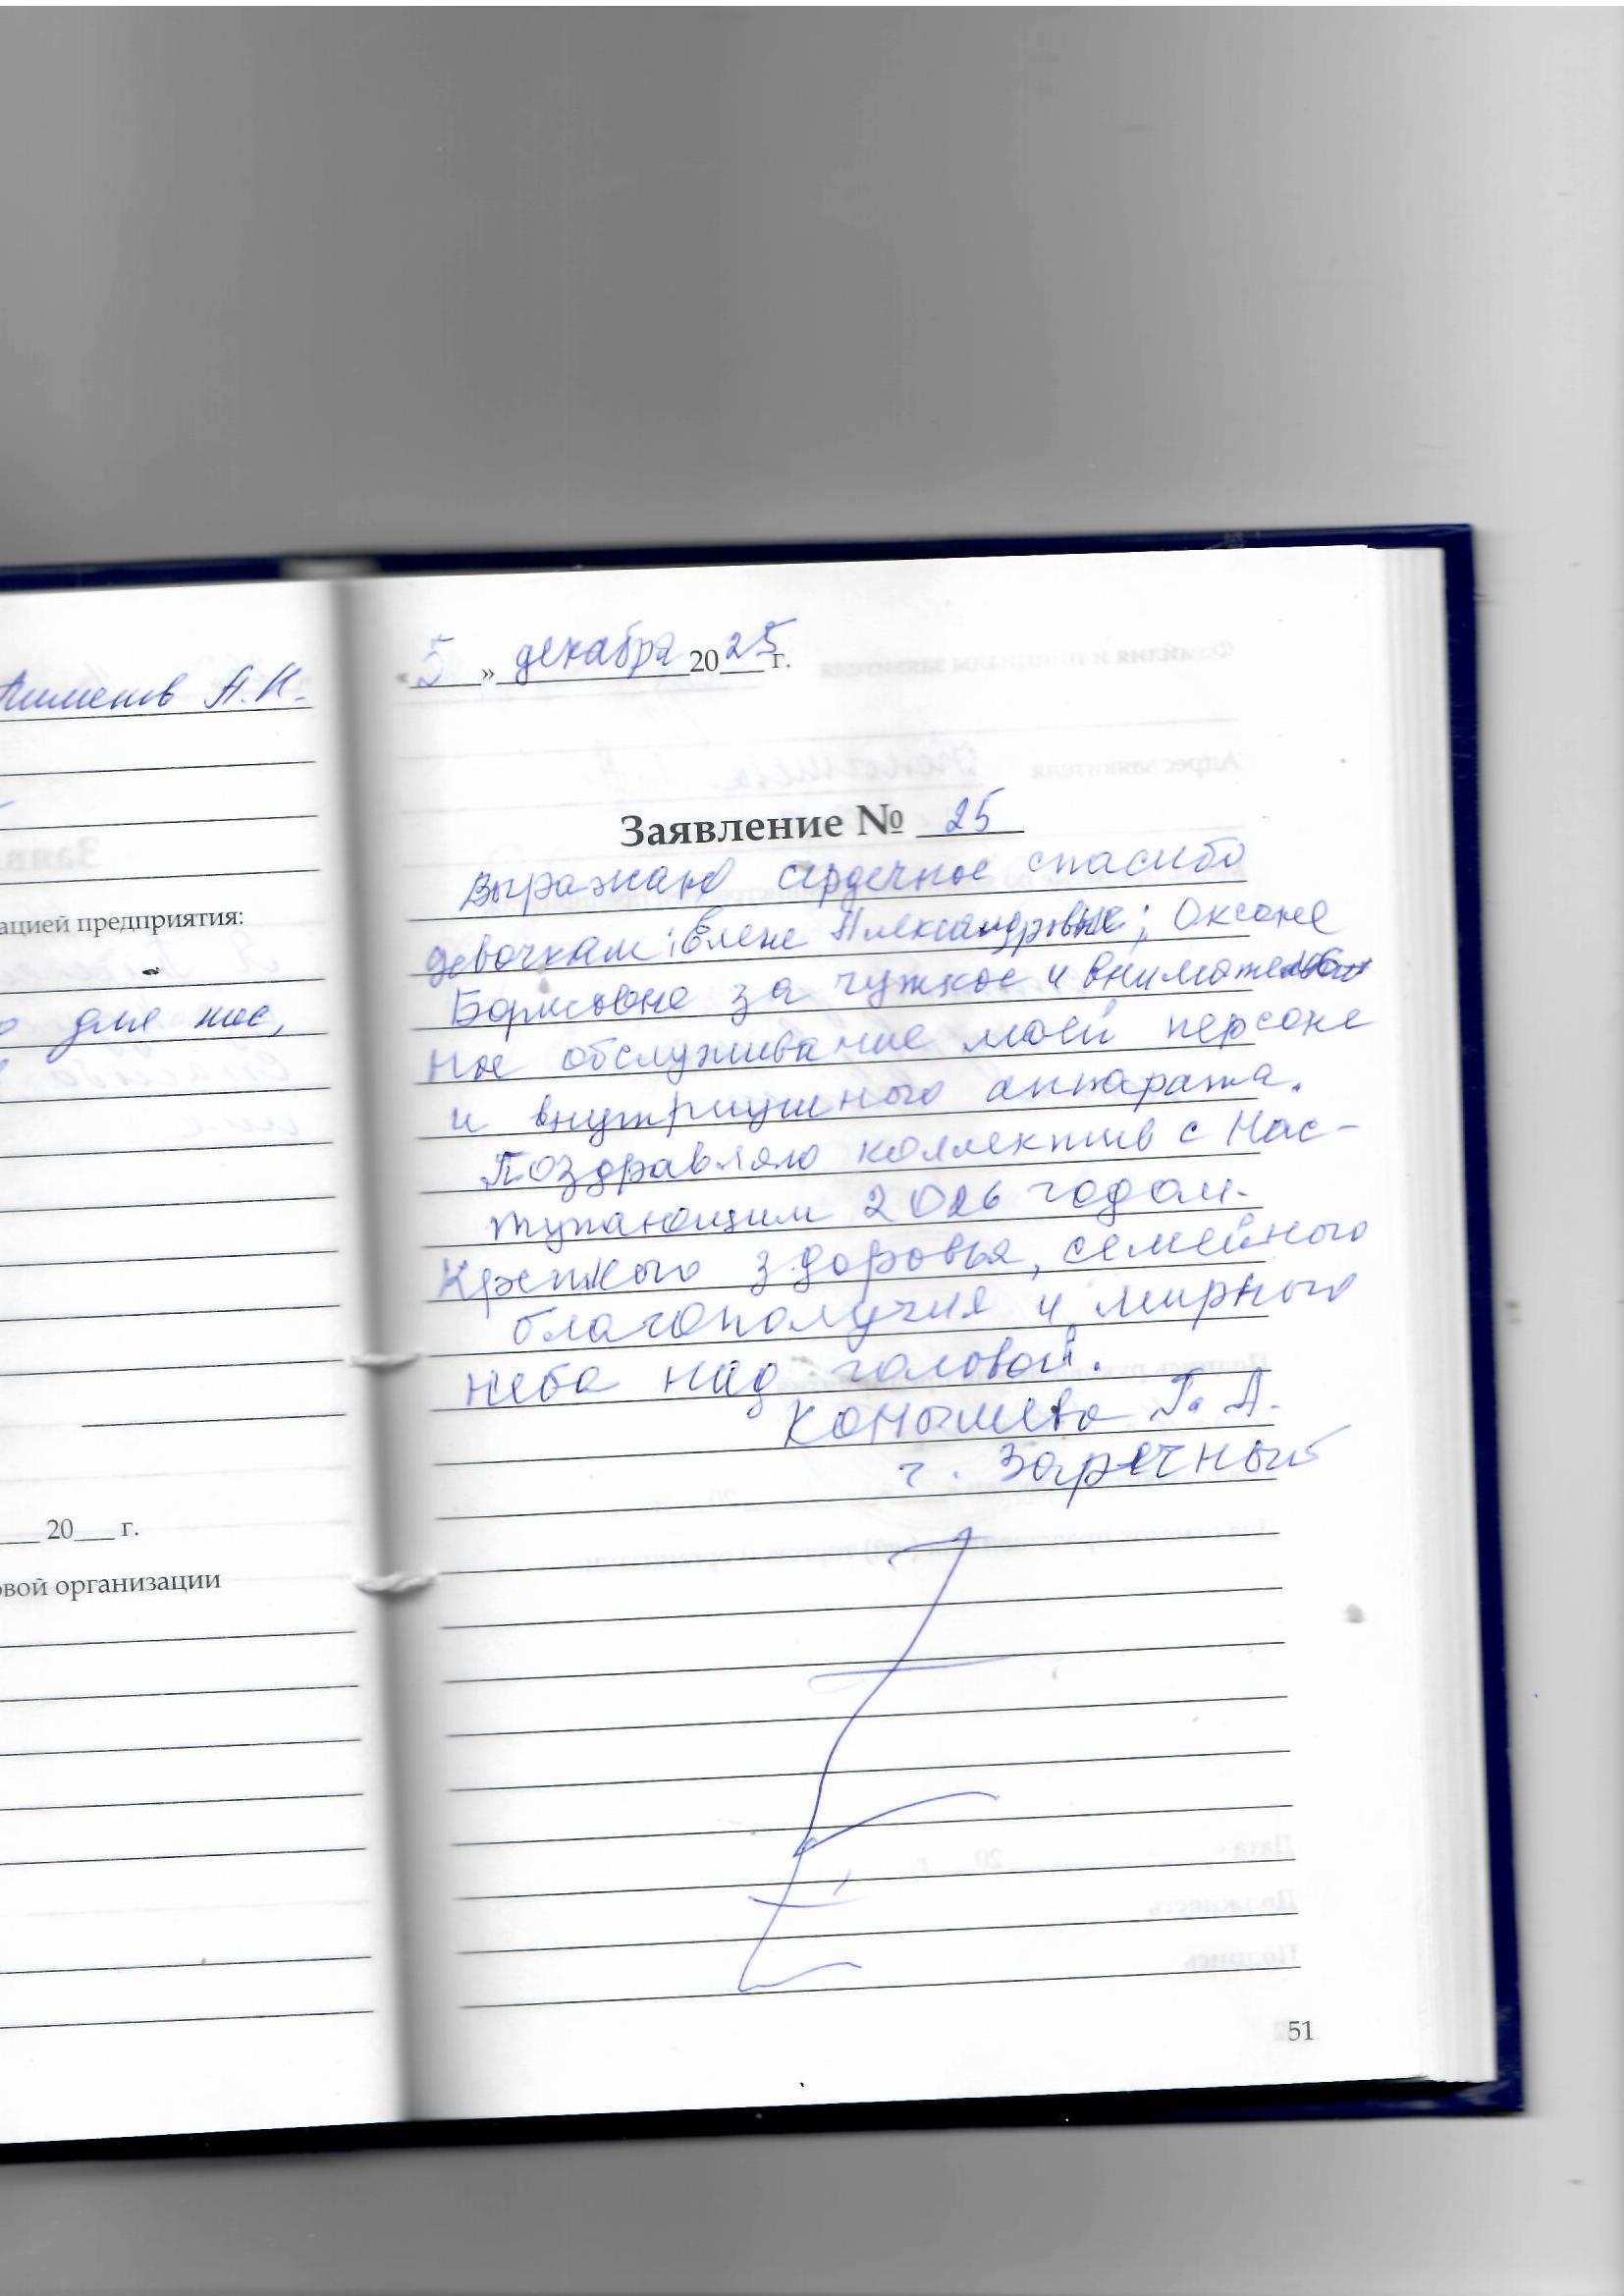 А.Н.
ацией предприятия:
для нас,
20 г.
овой организации
« 5 » декабря 20 25 г.
Заявление № 25
Выражаю сердечное спасибо
девочкам: Елене Александровне; Оксане
Борисовне за чужкое и вниматель
ное обслуживание моей персоне
и внутриушного аппарата.
Поздравляю коллектив с Нас-
тупающим 2026 годом.
Крепкого здоровья, семейного
благополучия и мирного
неба над головой.
Конышева Г. А.
г. Заречный
51